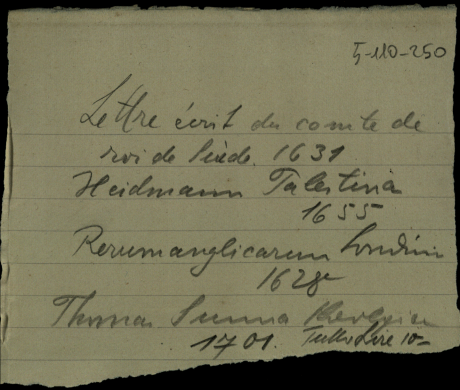 5-110-250
Lettre écrit du comte de
roi de Suède. 1631
Heidmann Palestina
1655
Rerumanglicarum Londini
1628
Thomas Summa theologica
1701. Tutto Lire 10-